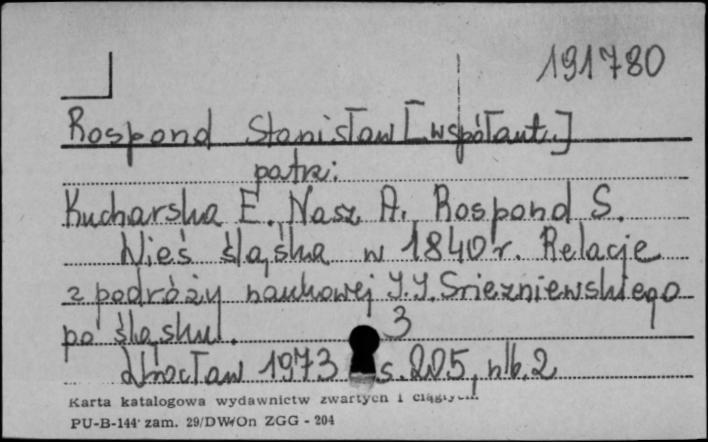 191780
Rospond Stanisław [współaut.]
patrz:
Kucharska E. Nasz A. Rospond S.
Wieś śląska w 1840 r. Relacje
z podróży naukowej I.I. Sriezniewskiego
po śląsku.
3
Wrocław 1973 s. 205, nlb. 2
Karta katalogowa wydawnictw zwartych i ciągłych
PU-B-144 zam. 29/DWrOn ZGG - 204